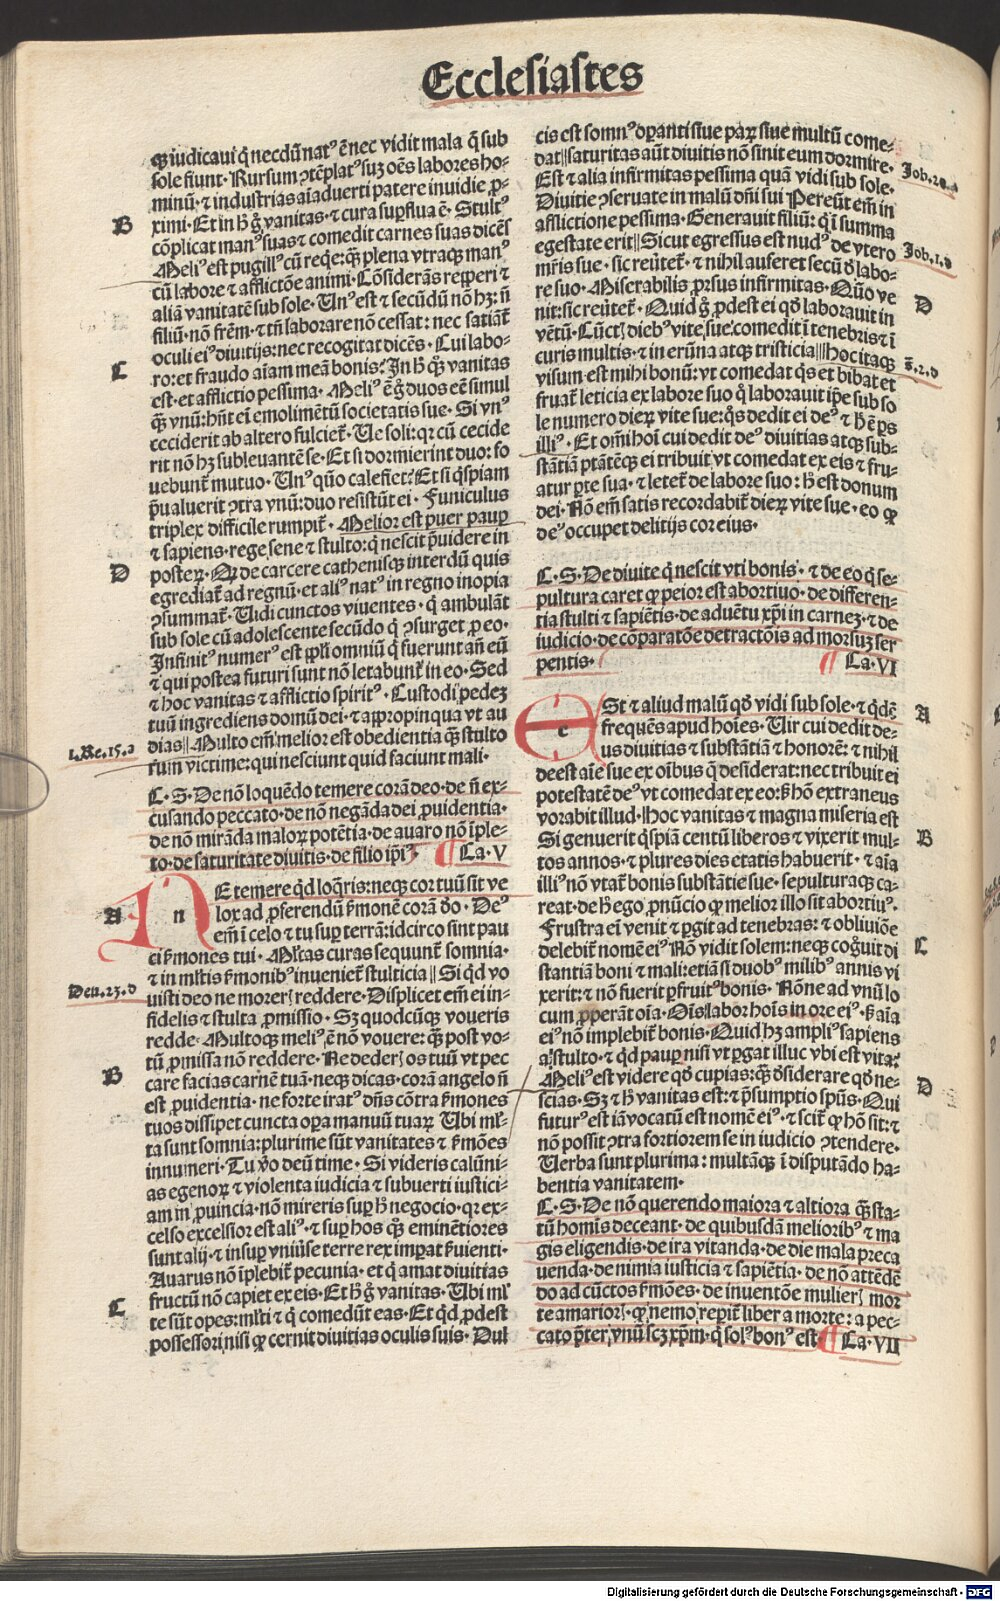 Ecclesiastes
q̃ iudicaui q̃ necdũ natꝰ ẽ nec vidit mala q̃ sub
sole fiunt· Rursum ꝯtẽplatꝰ suʒ oẽs labores ho-
minũ· ⁊ industrias aīaduerti patere inuidie ꝓ-
B
ximi· Et in h̃ g̃ vanitas· ⁊ cura suꝑflua ẽ· Stultꝰ
cõplicat manꝰ suas ⁊ comedit carnes suas dicẽs
Meliꝰ est pugillꝰ cũ req̃e: q̃ꝫ plena vtraqꝫ manꝰ
cũ labore ⁊ afflictõe animi· Cõsiderãs reꝑperi ⁊
aliã vanitatẽ sub sole· Unꝰ est ⁊ secũdũ nõ hʒ: ñ
filiũ· nõ frẽm· ⁊ tñ laborare nõ cessat: nec satiãt̃
oculi eiꝰ diuitijs: nec recogitat dicẽs· Cui labo-
C
ro: et fraudo aīam meã bonis? In h̃ q̃ꝫ vanitas
est· et afflictio pessima· Meliꝰ ẽ g̃ duos eẽ simul
q̃ꝫ vnũ: hñt ei᷈m emolimẽtũ societatis sue· Si vnꝰ
ceciderit ab altero fulciet̃· Ue soli: qꝛ cũ cecide
rit nõ hʒ subleuantẽ se· Et si dormierint duo: fo
uebunt̃ mutuo· Unꝰ quo calefiet? Et si q̃spiam
p̃ualuerit ꝯtra vnũ: duo resistũt ei· Funiculus
triplex difficile rumpit̃· Melior est puer pauꝑ
⁊ sapiens· rege sene ⁊ stulto: q̃ nescit p̃uidere in
D
posteꝝ· Qꝛ de carcere cathenisqꝫ interdũ quis
egrediat̃ ad regnũ· et aliꝰ natꝰ in regno inopia
ꝯsummat̃· Uidi cunctos viuentes· q̃ ambulãt
sub sole cũ adolescente secũdo q̃ ꝯsurget ꝓ eo·
Infinitꝰ numerꝰ est ppl̃i omniũ q̃ fuerunt an̄ eũ
⁊ qui postea futuri sunt nõ letabunt̃ in eo· Sed
⁊ hoc vanitas ⁊ afflictio spiritꝰ· Custodi pedeʒ
tuũ ingrediens domũ dei· ⁊ appropinqua vt au
1.Re.15.a
dias|| Multo em̃ melior est obedientia q̃ꝫ stulto
rum victime: qui nesciunt quid faciunt mali·
C· S· De nõ loquẽdo temere corã deo· de ñ ex-
cusando peccato· de nõ negãda dei ꝓuidentia·
de nõ mirãda maloꝝ potẽtia· de auaro nõ īple-
to· de saturitate diuitis· de filio ip̃iꝰ· ¶ Ca·V
A
NE temere q̃d loq̃ris: neqꝫ cor tuũ sit ve
n
lox ad ꝓferendũ s̃monẽ corã d̃o· Deꝰ
em̃ ī celo ⁊ tu suꝑ terrã: idcirco sint pau
ci s̃mones tui· Ml̃tas curas sequunt̃ somnia·
⁊ in ml̃tis s̃monibꝰ inueniet̃ stulticia|| Si q̃d vo
Deu.23.d
uisti deo ne moreꝛ̃ reddere· Displicet em̃ ei in-
fidelis ⁊ stulta ꝓmissio· Sʒ quodcũqꝫ voueris
redde· Multoqꝫ meliꝰ ẽ nõ vouere: q̃ꝫ post vo-
tũ ꝓmissa nõ reddere· Ne dederꝭ os tuũ vt pec
B
care facias carnẽ tuã· neqꝫ dicas· corã angelo ñ
est ꝓuidentia· ne forte iratꝰ dñs cõtra s̃mones
tuos dissipet cuncta oꝑa manuũ tuaꝝ· Ubi ml̃-
ta sunt somnia: plurime sũt vanitates ⁊ s̃mões
innumeri· Tu v̄o deũ time· Si videris calũni-
as egenoꝝ ⁊ violenta iudicia ⁊ subuerti iustici-
am in ꝓuincia· nõ mireris suꝑ h̃ negocio· qꝛ ex-
celso excelsior est aliꝰ· ⁊ suꝑ hos q̃ꝫ eminẽtiores
sunt alij· ⁊ insuꝑ vniu̾se terre rex imꝑat s̃uienti·
Auarus nõ īplebit̃ pecunia· et q̃ amat diuitias
fructũ nõ capiet ex eis· Et h̃ g̃ vanitas· Ubi ml̃
C
te sũt opes: ml̃ti ⁊ q̃ comedũt eas· Et q̃d ꝓdest
possessori· nisi ꝙ cernit diuitias oculis suis· Dul
cis est somnꝰ oꝑanti siue paꝝ siue multũ come-
dat|| saturitas aũt diuitis nõ sinit eum dormire·
Job.20.
Est ⁊ alia infirmitas pessima quã vidi sub sole·
Diuitie ꝯseruate in malũ dñi sui Pereũt em̃ in
afflictione pessima· Generauit filiũ: q̃ ī summa
egestate erit|| Sicut egressus est nudꝰ de vtero
Job.1.d
mr̃is sue· sic reu̾tet̃· ⁊ nihil auferet secũ d̃ labo-
re suo· Miserabilis ꝓrsus infirmitas· Quõ ve
D
nit: sic reu̾tet̃· Quid g̃ ꝓdest ei q̃d laborauit in
vẽtũ· Cũctꝭ diebꝰ vite sue comedit ī tenebris ⁊ ī
curis multis· ⁊ in erũna atqꝫ tristicia|| Hoc itaqꝫ
s̃.2.d
visum est mihi bonũ: vt comedat q̃s et bibat et
fruat̃ leticia ex labore suo q̃ laborauit ip̃e sub so
le numero dieꝝ vite sue: q̃s dedit ei deꝰ ⁊ h̃ ẽ ꝑs
illiꝰ· Et om̃i hoĩ cui dedit deꝰ diuitias atqꝫ sub-
stãtiã p̃tatẽqꝫ ei tribuit vt comedat ex eis ⁊ fru-
atur ꝑte sua· ⁊ letet̃ de labore suo: h̃ est donum
dei· Nõ em̃ satis recordabit̃ dieꝝ vite sue· eo ꝙ
deꝰ occupet delitijs cor eius·
C· S· De diuite q̃ nescit vti bonis· ⁊ de eo q̃ se-
pultura caret ꝙ peior est abortiuo· de differen-
tia stulti ⁊ sapiẽtis· de aduẽtu xp̃i in carneʒ· ⁊ de
iudicio· de cõparatõe detractõis ad morsuʒ ser
pentis· ¶ Ca·VI
ESt ⁊ aliud malũ q̃d vidi sub sole· ⁊ q̃dẽ
A
e
frequẽs apud hoĩes· Uir cui dedit de-
us diuitias ⁊ substãtiã ⁊ honorẽ: ⁊ nihil
deest aĩe sue ex oĩbus q̃ desiderat: nec tribuit ei
potestatẽ deꝰ vt comedat ex eo: s̃ hõ extraneus
vorabit illud· Hoc vanitas ⁊ magna miseria est
B
Si genuerit q̃spiã centũ liberos ⁊ vixerit mul-
tos annos· ⁊ plures dies etatis habuerit· ⁊ aĩa
illiꝰ nõ vtat̃ bonis substãtie sue· sepulturaqꝫ ca-
reat· de h̃ ego ꝓnũcio ꝙ melior illo sit abortiuꝰ·
Frustra ei᷈m venit ⁊ ꝑgit ad tenebras: ⁊ obliuiõe
C
delebit̃ nomẽ eiꝰ Nõ vidit solem: neqꝫ cog̃uit di
stantiã boni ⁊ mali: etiã si duobꝰ milibꝰ annis vi
xerit: ⁊ nõ fuerit ꝑfruitꝰ bonis· Nõne ad vnũ lo
cum ꝓꝑant oĩa· Oĩs labor hoĩs in ore eiꝰ· s̃ aĩa
eiꝰ nõ implebit̃ bonis· Quid hʒ ampliꝰ sapiens
a stulto· ⁊ q̃d pauꝑ nisi vt ꝑgat illuc vbi est vita?
D
Meliꝰ est videre q̃d cupias: q̃ꝫ d̃siderare q̃d ne-
scias· Sʒ ⁊ h̃ vanitas est: ⁊ p̃sumptio spũs· Qui
futurꝰ est iã vocatũ est nomẽ eiꝰ· ⁊ scit̃ ꝙ hõ sit: ⁊
nõ possit ꝯtra fortiorem se in iudicio ꝯtendere·
Uerba sunt plurima: multãqꝫ ī disputãdo ha-
bentia vanitatem·
C· S· De nõ querendo maiora ⁊ altiora q̃ꝫ sta-
tũ homĩs deceant· de quibusdã melioribꝰ ⁊ ma
gis eligendis· de ira vitanda· de die mala preca
uenda· de nimia iusticia ⁊ sapiẽtia· de nõ attẽdẽ
do ad cũctos s̃mões· de inuentõe mulierꝭ mor
te amariorꝭ· ꝙ nemo reꝑit̃ liber a morte: a pec-
cato p̃ter vnũ scʒ xp̃m· q̃ solꝰ bonꝰ est· ¶ Ca·VII
Digitalisierung gefördert durch die Deutsche Forschungsgemeinschaft · DFG